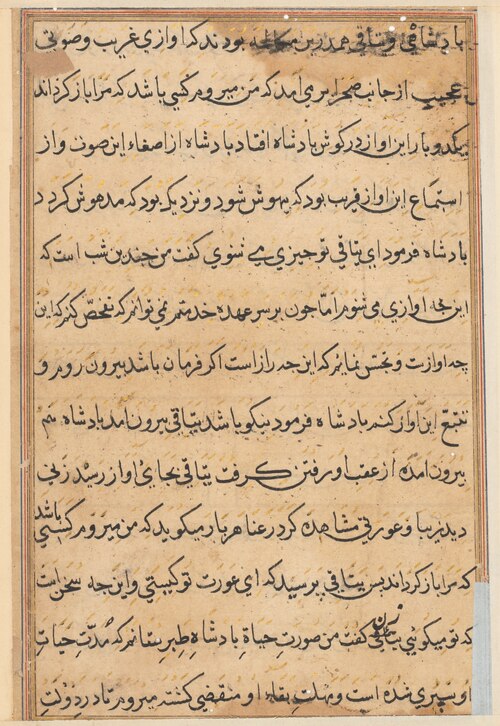 بادشاهی ویتاقی همدرین بودند که اوازی غریب و صوتی
عجیب از جانب صحرا برمی امد که من میروم کسی باشد که مرا باز کرداند
یکدو بار این اواز در کوش بادشاه افتاد بادشاه از اصغاء این صوت و از
استماع این اواز قریب بود که بیهوش شود و نزدیک بود که مدهوش کردد
بادشاه فرمود ای یتاقی تو چیزی می شنوی کفت من چندین شب است که
این اوازی می شنوم اما چون بر سر عهده خدمتم نمی توانم که تفحص کنم که این
چه اوازست و تجسس نمایم که این چه رازاست اکر فرمان باشد بیرون روم و
تتبع این اواز کنم بادشاه فرمود نیکو باشد یتاقی بیرون امد بادشاه هم
بیرون امده از عقب او رفتن کرفت یتاقی بجای اواز رسید زنی
دید زیبا و عورتی مشاهده کرد رعنا هر بار میکوید که من میروم کسی باشد
که مرا باز کرداند بس یتاقی برسید که ای عورت تو کیستی و این چه سخن است
که تو میکوئی زن کفت من صورت حیاة بادشاه طبرستانم که مدت حیات
او سپری شده است و مهلت بقاء او منقضی کشته میروم تا در دولت